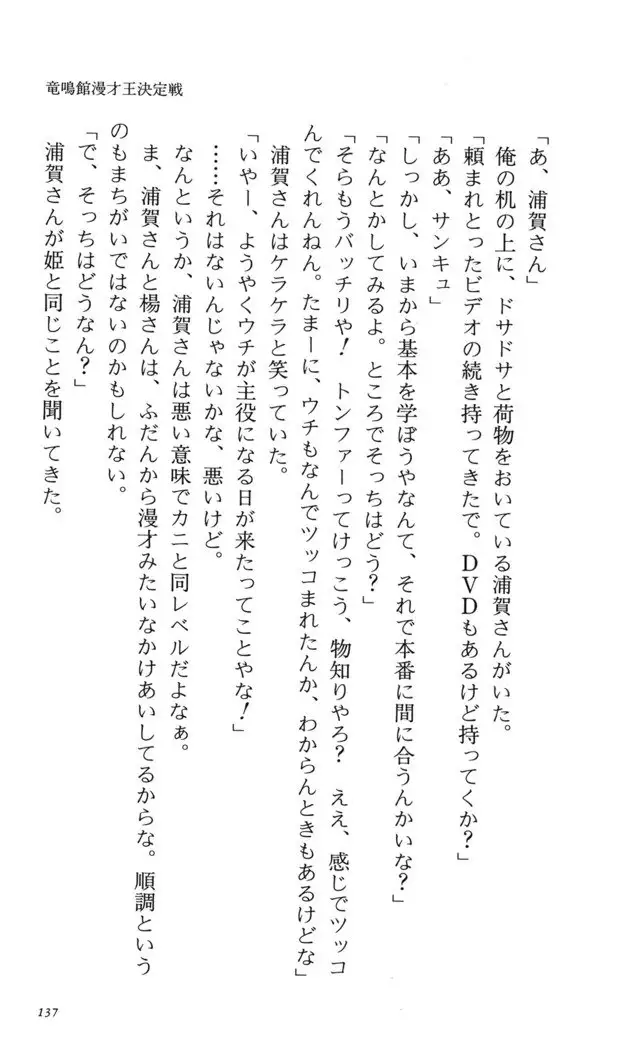 竜鳴館漫才王決定戦
「あ、浦賀さん」
俺の机の上に、ドサドサと荷物をおいている浦賀さんがいた。
「頼まれとったビデオの続き持ってきたで。DVDもあるけど持ってくか?」
「ああ、サンキュ」
「しっかし、いまから基本を学ぼうやなんて、それで本番に間に合うんかいな?」
「なんとかしてみるよ。ところでそっちはどう?」
「そらもうバッチリや! トンファーってけっこう、物知りやろ? ええ、感じでツッコ
んでくれんねん。たまーに、ウチもなんでツッコまれたんか、わからんときもあるけどな」
浦賀さんはケラケラと笑っていた。
「いやー、ようやくウチが主役になる日が来たってことやな!」
……それはないんじゃないかな、悪いけど。
なんというか、浦賀さんは悪い意味でカニと同レベルだよなぁ。
ま、浦賀さんと楊さんは、ふだんから漫才みたいなかけあいしてるからな。順調という
のもまちがいではないのかもしれない。
「で、そっちはどうなん?」
浦賀さんが姫と同じことを聞いてきた。
137